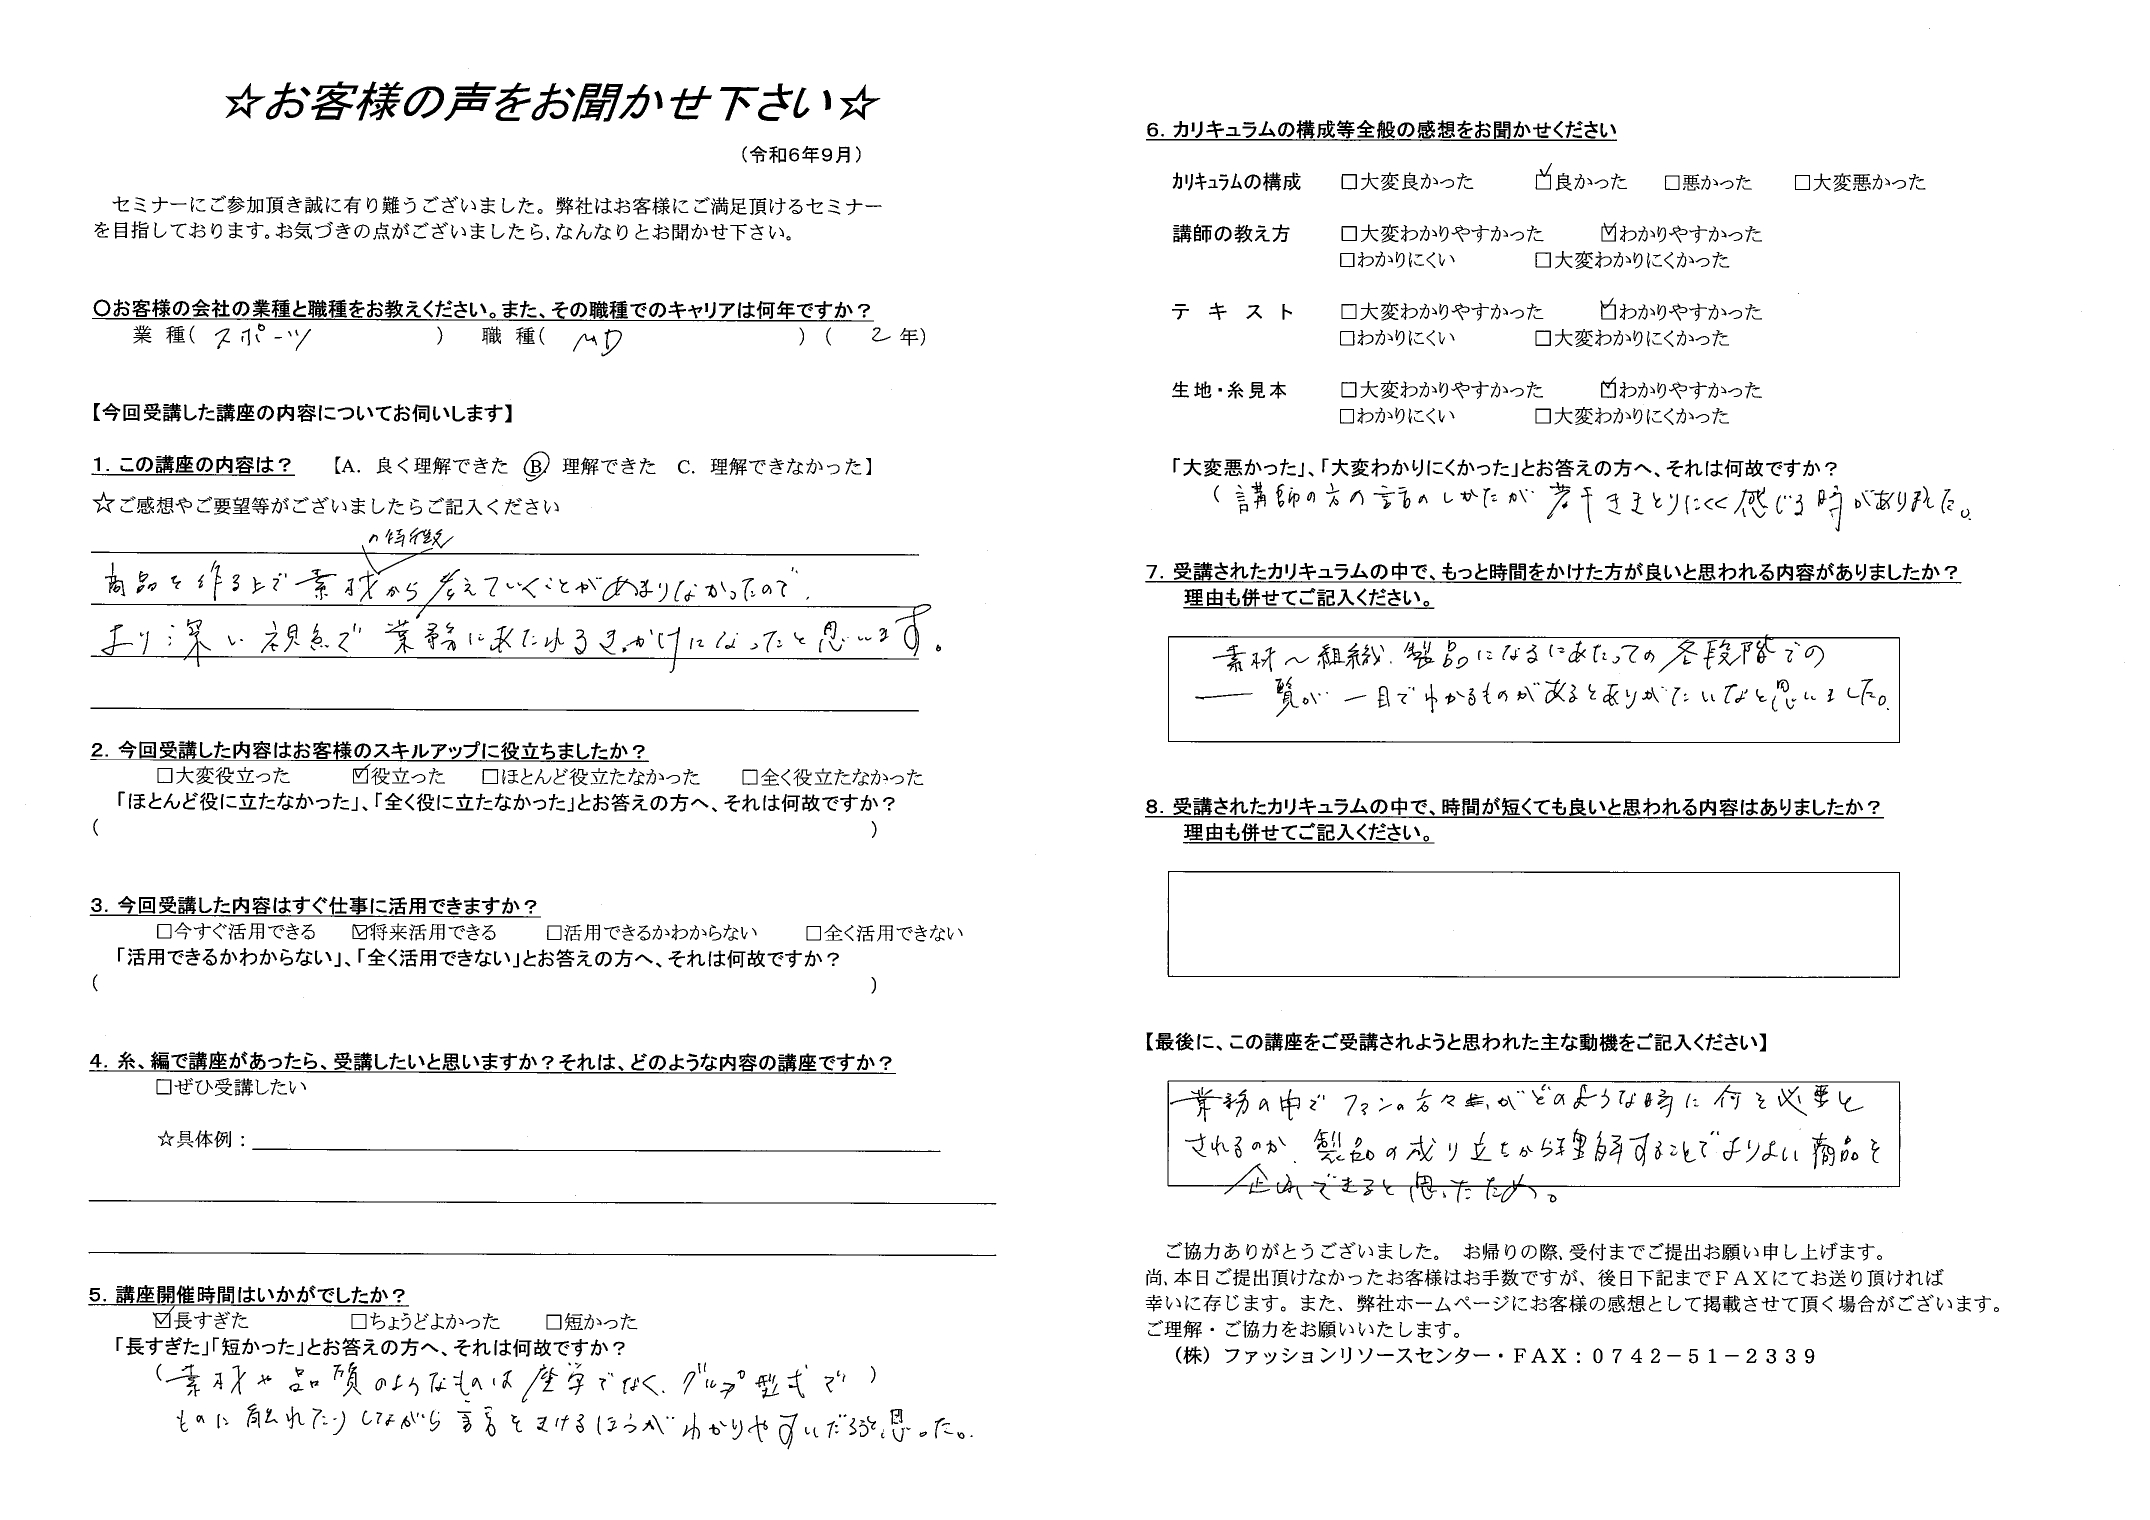 ☆お客様の声をお聞かせ下さい☆
（令和6年9月）
セミナーにご参加頂き誠に有り難うございました。弊社はお客様にご満足頂けるセミナー
を目指しております。お気づきの点がございましたら、なんなりとお聞かせ下さい。
〇お客様の会社の業種と職種をお教えください。また、その職種でのキャリアは何年ですか？
業 種( スポーツ ) 職 種( MD ) ( 2 年)
【今回受講した講座の内容についてお伺いします】
1. この講座の内容は？ 【A. 良く理解できた B. 理解できた C. 理解できなかった】
☆ご感想やご要望等がございましたらご記入ください
の特徴
商品を作る上で素材から考えていくことがあまりなかったので、
より深い視点で業務にあたれるきっかけになったと思います。
2. 今回受講した内容はお客様のスキルアップに役立ちましたか？
□大変役立った ☑役立った □ほとんど役立たなかった □全く役立たなかった
「ほとんど役に立たなかった」、「全く役に立たなかった」とお答えの方へ、それは何故ですか？
( )
3. 今回受講した内容はすぐ仕事に活用できますか？
□今すぐ活用できる ☑将来活用できる □活用できるかわからない □全く活用できない
「活用できるかわからない」、「全く活用できない」とお答えの方へ、それは何故ですか？
( )
4. 糸、編で講座があったら、受講したいと思いますか？それは、どのような内容の講座ですか？
□ぜひ受講したい
☆具体例：
5. 講座開催時間はいかがでしたか？
☑長すぎた □ちょうどよかった □短かった
「長すぎた」「短かった」とお答えの方へ、それは何故ですか？
(素材や品質のようなものは座学でなく、グループ型式で)
ものに触れたりしながら話をきけるほうがわかりやすいだろうと思った。
6. カリキュラムの構成等全般の感想をお聞かせください
カリキュラムの構成 □大変良かった ☑良かった □悪かった □大変悪かった
講師の教え方 □大変わかりやすかった ☑わかりやすかった
□わかりにくい □大変わかりにくかった
テ キ ス ト □大変わかりやすかった ☑わかりやすかった
□わかりにくい □大変わかりにくかった
生地・糸見本 □大変わかりやすかった ☑わかりやすかった
□わかりにくい □大変わかりにくかった
「大変悪かった」、「大変わかりにくかった」とお答えの方へ、それは何故ですか？
(講師の方の話のしかたが若干ききとりにくく感じる時がありました。
7. 受講されたカリキュラムの中で、もっと時間をかけた方が良いと思われる内容がありましたか？
理由も併せてご記入ください。
素材〜組織、製品になるにあたっての各段階での
一覧が一目でわかるものがあるとありがたいなと思いました。
8. 受講されたカリキュラムの中で、時間が短くても良いと思われる内容はありましたか？
理由も併せてご記入ください。
【最後に、この講座をご受講されようと思われた主な動機をご記入ください】
業務の中でファンの方々がどのような時に何を必要と
されるのか、製品の成り立ちから理解することでよりよい商品を
企画できると思ったため。
ご協力ありがとうございました。 お帰りの際、受付までご提出お願い申し上げます。
尚、本日ご提出頂けなかったお客様はお手数ですが、後日下記までＦＡＸにてお送り頂ければ
幸いに存じます。また、弊社ホームページにお客様の感想として掲載させて頂く場合がございます。
ご理解・ご協力をお願いいたします。
（株）ファッションリソースセンター・ＦＡＸ：０７４２－５１－２３３９